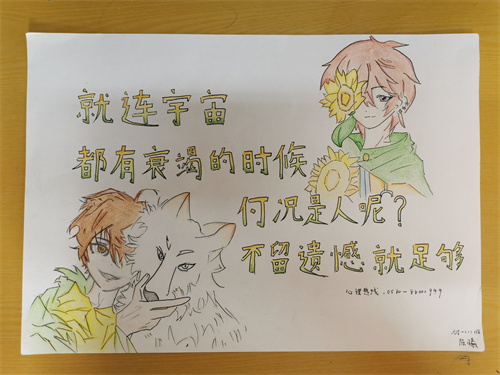 就连宇宙
都有衰竭的时候
何况是人呢?
不留遗憾就足够
心理热线: